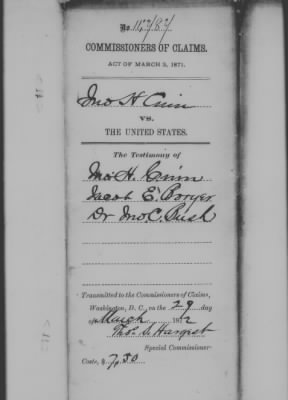 COMMISSIONERS OF CLAIMS.
ACT OF MARCH 3, 1871.
Jno H Crim
vs.
THE UNITED STATES.
The Testimony of
Jno H. Crim
Jacob E. Boryer
Dr Jno C. Rush
Transmitted to the Commissioners of Claims,
Washington, D. C., on the 29 day
of March 1872
Thos S. Hargest
Special Commissioner.
Costs, $ 7.50